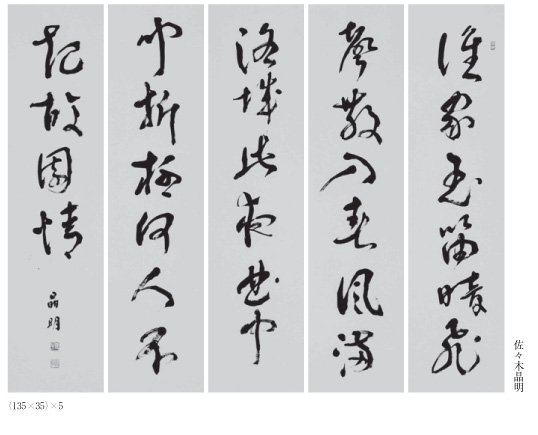 誰家玉笛暗飛
聲散入春風滿
洛城此夜曲中
聞折柳何人不
起故園情
晶明
佐々木晶明
(135×35)×5